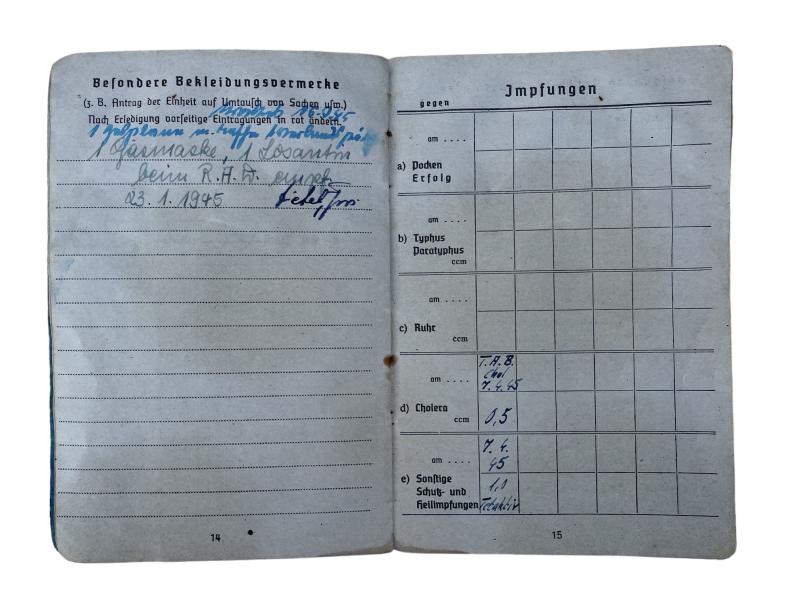 Besondere Bekleidungsvermerke
(z. B. Antrag der Einheit auf Umtausch von Sachen usw.)
Nach Erledigung vorseitige Eintragungen in rot ändern.
1 m.
1 Gasmaske, 1 Losantin
beim R.A.D. empf.
23. 1. 1945
14
Impfungen
gegen
am . . . .
a) Pocken
Erfolg
am . . . .
b) Typhus
Paratyphus
ccm
am . . . .
c) Ruhr
ccm
T.A.B.
Chol
am . . . . 7. 4. 45
d) Cholera
ccm 0,5
7. 4.
am . . . . 45
e) Sonstige
Schutz- und 1,0
Heilimpfungen
15